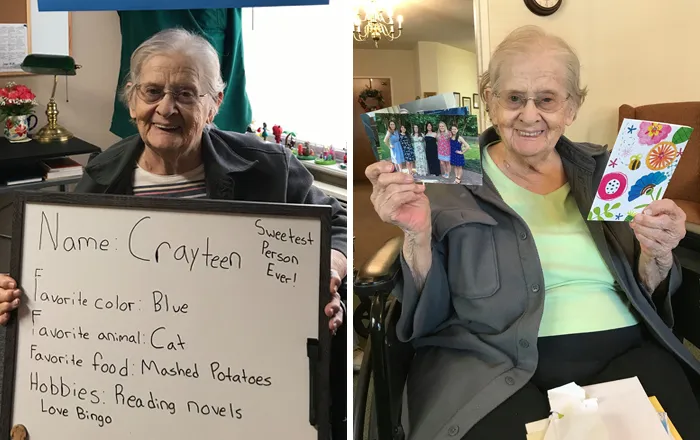 Name: Crayteen
Sweetest
Person
Ever!
Favorite color: Blue
Favorite animal: Cat
Favorite food: Mashed Potatoes
Hobbies: Reading novels
Love Bingo